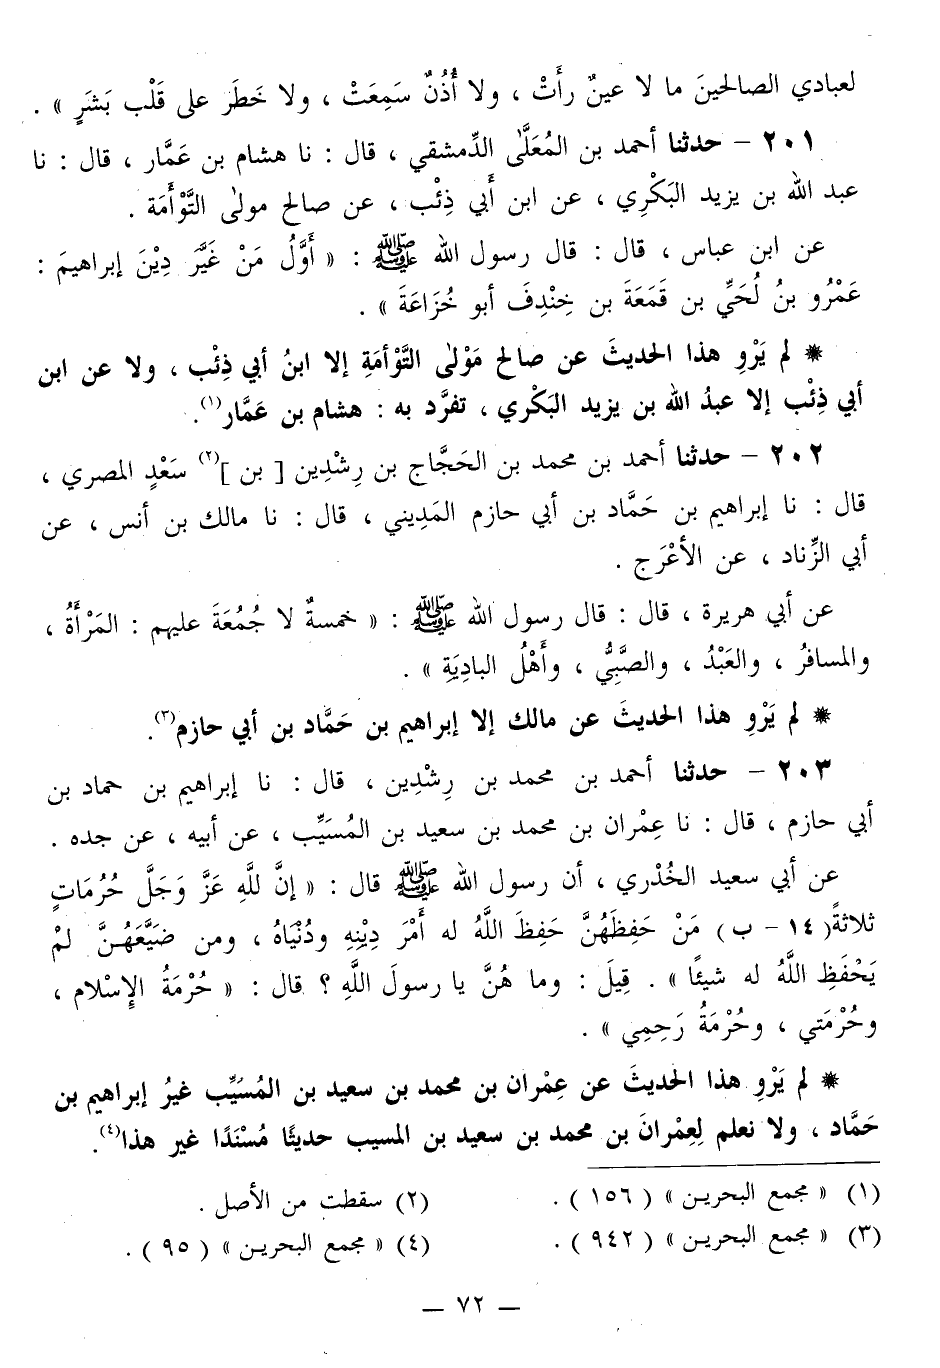 لعبادي الصالحينَ ما لا عينٌ رأَتْ ، ولا أُذُنٌ سَمِعَتْ ، ولا خَطَر على قَلْب بَشَرٍ » .
٢٠١ – حدثنا أحمد بن المُعَلَّىٰ الدِّمشقي ، قال : نا هشام بن عَمَّار ، قال : نا
عبد الله بن يزيد البَكْرِي ، عن ابن أبي ذِئْب ، عن صالح مولىٰ التَّوْأَمَة .
عن ابن عباس ، قال : قال رسول الله ﷺ : « أَوَّلُ مَنْ غَيَّرَ دِيْنَ إبراهيمَ :
عَمْرُو بنُ لُحَيِّ بن قَمَعَةَ بن خِنْدِفَ أبو خُزَاعَةَ » .
* لم يَرْوِ هذا الحديثَ عن صالح مَوْلىٰ التَّوْأمَةِ إلا ابنُ أبي ذِئْب ، ولا عن ابن
أبي ذِئْب إلا عبدُ الله بن يزيد البَكْري ، تفرَّد به : هشام بن عَمَّار(١).
٢٠٢ – حدثنا أحمد بن محمد بن الحَجَّاج بن رِشْدِين [ بن ](٢) سَعْدٍ المصري ،
قال : نا إبراهيم بن حَمَّاد بن أبي حازم المَدِيني ، قال : نا مالك بن أنس ، عن
أبي الزِّناد ، عن الأعْرَج .
عن أبي هريرة ، قال : قال رسول الله ﷺ : « خمسةٌ لا جُمُعَةَ عليهم : المَرْأَةُ ،
والمسافرُ ، والعَبْدُ ، والصَّبِيُّ ، وأَهْلُ البادِيَةِ » .
* لم يَرْوِ هذا الحديثَ عن مالك إلا إبراهيم بن حَمَّاد بن أبي حازم(٣).
٢٠٣ – حدثنا أحمد بن محمد بن رِشْدِين ، قال : نا إبراهيم بن حماد بن
أبي حازم ، قال : نا عِمْران بن محمد بن سعيد بن المُسَيِّب ، عن أبيه ، عن جده .
عن أبي سعيد الخُدْري ، أن رسول الله ﷺ قال : « إنَّ للَّهِ عَزَّ وَجَلَّ حُرُمَاتٍ
ثلاثةً( ١٤ – ب ) مَنْ حَفِظَهُنَّ حَفِظَ اللَّهُ له أَمْرَ دِيْنِهِ ودُنْيَاهُ ، ومن ضَيَّعَهُنَّ لمْ
يَحْفَظِ اللَّهُ له شيئًا » . قِيلَ : وما هُنَّ يا رسولَ اللَّهِ ؟ قال : « حُرْمَةُ الإسْلام ،
وحُرْمَتي ، وحُرْمَةُ رَحِمِي » .
* لم يَرْوِ هذا الحديثَ عن عِمْران بن محمد بن سعيد بن المُسَيِّب غيرُ إبراهيم بن
حَمَّاد ، ولا نعلم لِعِمْرانَ بن محمد بن سعيد بن المسيب حديثًا مُسْنَدًا غير هذا(٤).
(١) « مجمع البحرين » ( ١٥٦ ) . (٢) سقطت من الأصل .
(٣) « مجمع البحرين » ( ٩٤٢ ) . (٤) « مجمع البحرين » ( ٩٥ ) .
– ٧٢ –